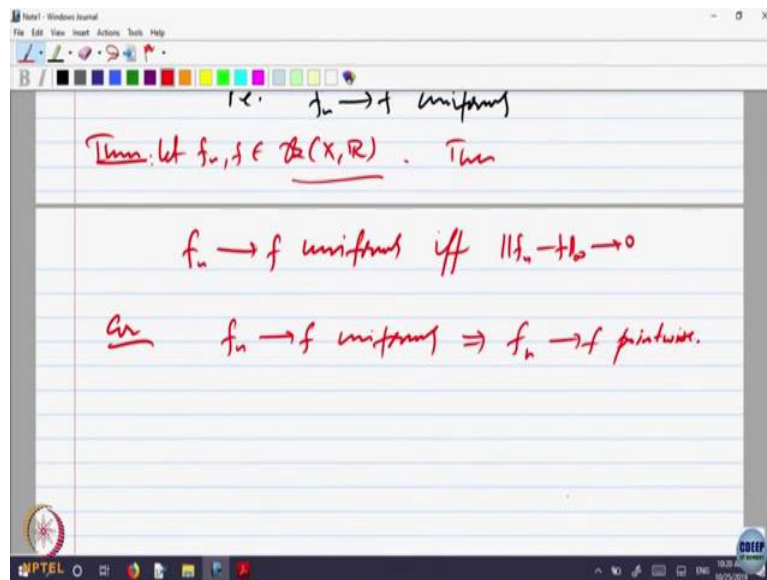 Note1 - Windows Journal
File Edit View Insert Actions Tools Help
B I
i.e. fₙ → f uniformly
Thm: Let fₙ, f ∈ B(X, ℝ). Then
fₙ → f uniformly iff ||fₙ - f||∞ → 0
Cor fₙ → f uniformly ⇒ fₙ → f pointwise.
NPTEL
CDEEP
ENG
10/25/2018